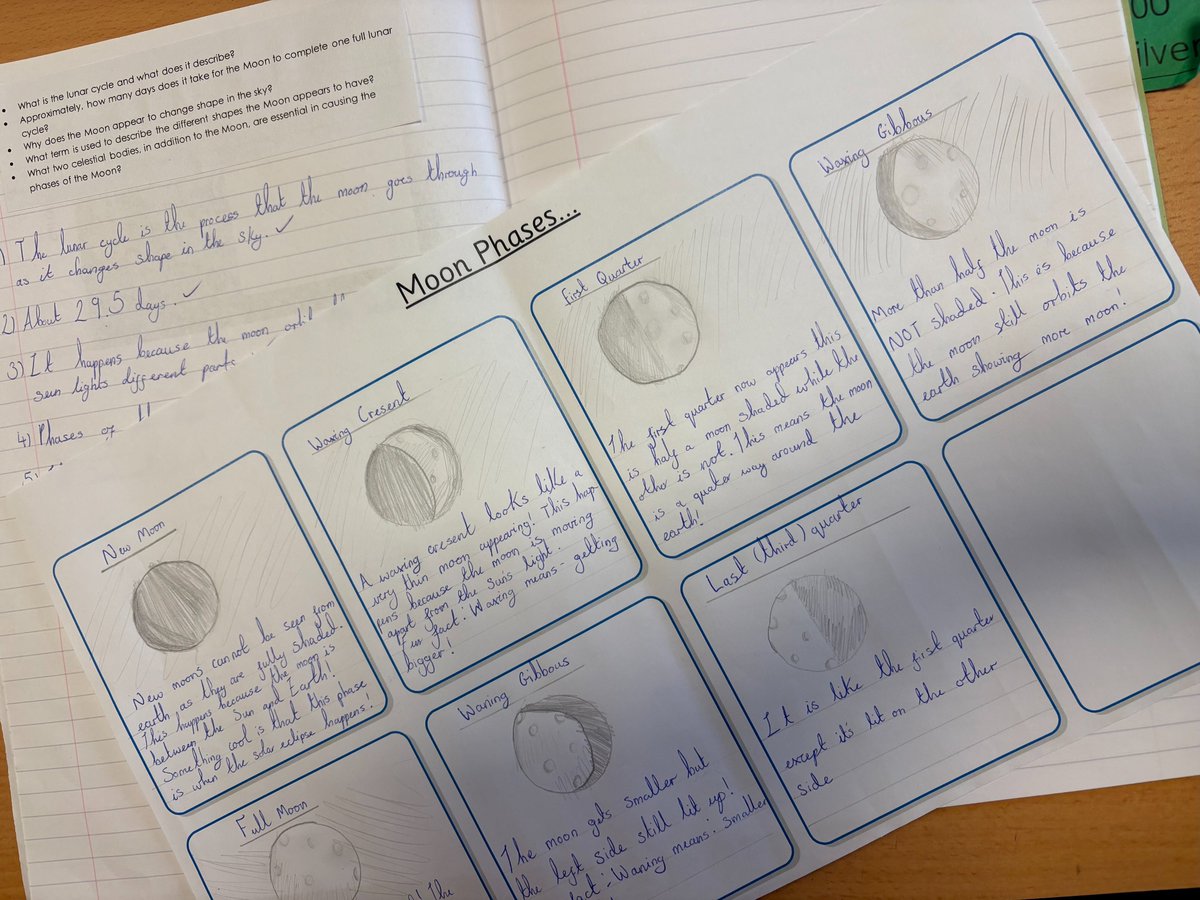 What is the lunar cycle and what does it describe?
Approximately, how many days does it take for the Moon to complete one full lunar
cycle?
Why does the Moon appear to change shape in the sky?
What term is used to describe the different shapes the Moon appears to have?
What two celestial bodies, in addition to the Moon, are essential in causing the
phases of the Moon?
1) The lunar cycle is the process that the moon goes through
as it changes shape in the sky. ✓
2) About 29.5 days. ✓
3) It happens because the moon
sun lights different parts
4) Phases of
Moon Phases...
New Moon
New moons cannot be seen from
earth as they are fully shaded.
This happens because the moon is
between the Sun and Earth!
Something cool is that this phase
is when the solar eclipse happens!
Waxing Cresent
A waxing cresent looks like a
very thin moon appearing! This hap-
pens because the moon is moving
apart from the Sun's light.
Fun fact: Waxing means - getting
bigger!
First Quarter
The first quarter now appears this
is half a moon shaded while the
other is not. This means the moon
is a quater way around the
earth!
Waxing Gibbous
More than half the moon is
NOT shaded. This is because
the moon still orbits the
earth showing more moon!
Full Moon
The
Waning Gibbous
The moon gets smaller but
the left side still lit up!
fact: Waning means: smaller
Last (third) quarter
It is like the first quarter
except it's lit on the other
side
00
ilver